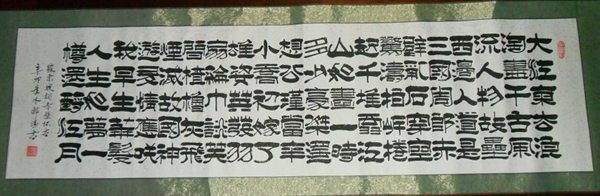 大江東去浪
淘盡千古風
流人物故壘
西邊人道是
三國周郎赤
壁亂石穿空
驚濤拍岸捲
起千堆雪江
山如畫一時
多少豪傑遙
想公瑾當年
小喬初嫁了
雄姿英發羽
扇綸巾談笑
間檣櫓灰飛
煙滅故國神
遊多情應笑
我早生華髮
人生如夢一
樽還酹江月
詞赤壁怀古
辛卯年冬